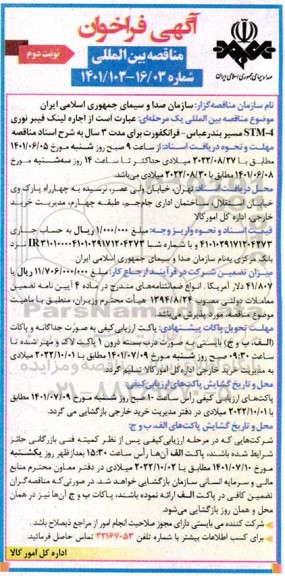 آگهی فراخوان
مناقصه بین المللی
نوبت دوم
شماره ۱۶/۰۳-۱۴۰۱/۱۰۳
صدا و سیمای جمهوری اسلامی ایران
نام سازمان مناقصه‌گزار: سازمان صدا و سیمای جمهوری اسلامی ایران
موضوع مناقصه بین المللی یک مرحله‌ای: عبارت است از اجاره لینک فیبر نوری
STM-4 مسیر بندرعباس- فرانکفورت برای مدت ۳ سال به شرح اسناد مناقصه
مهلت و نحوه دریافت اسناد: از ساعت ۹ صبح روز شنبه مورخ ۱۴۰۱/۰۶/۰۵
مطابق با ۲۰۲۲/۰۸/۲۷ میلادی حداکثر تا ساعت ۱۴ روز سه‌شنبه مورخ
۱۴۰۱/۰۶/۰۸ مطابق با ۲۰۲۲/۰۸/۳۰ میلادی می‌باشد.
محل دریافت اسناد: تهران، خیابان ولی عصر، نرسیده به چهارراه پارک وی
خیابان استقلال، ساختمان اداری جام‌جم، طبقه چهارم، مدیریت خرید
خارجی، اداره کل امور کالا
قیمت اسناد و نحوه واریز وجه: مبلغ ۱/۰۰۰/۰۰۰ ریال به حساب جاری
۴۱۰۱۰۲۹۱۷۱۲۰۶۲۷۳ و با شماره شبا IR ۳۱۰۱۰۰۰۰۴۱۰۱۰۲۹۱۷۱۲۰۶۲۷۳ نزد
بانک مرکزی به‌نام سازمان صدا و سیمای جمهوری اسلامی ایران
میزان تضمین شرکت در فرآیند ارجاع کار: مبلغ ۱۱/۷۰۶/۰۰۰/۰۰۰ ریال یا
۴۱/۸۰۷ دلار آمریکا. انواع ضمانتنامه‌های مندرج در ماده ۴ آیین نامه تضمین
معاملات دولتی مصوب ۱۳۹۴/۸/۲۴ هیأت محترم وزیران، منطبق با ماهیت
موضوع مناقصه، مورد پذیرش می‌باشد.
مهلت تحویل پاکات پیشنهادی: پاکت ارزیابی کیفی به صورت جداگانه و پاکات
(الف، ب و ج) بایستی به صورت درب بسته درون ۱ پاکت لاک و مهر شده تا
ساعت ۰۹:۳۰ صبح روز شنبه مورخ ۱۴۰۱/۰۷/۰۹ مطابق با ۲۰۲۲/۱۰/۰۱ میلادی
به مدیریت خرید خارجی اداره کل امور کالا تسلیم گردد.
محل و تاریخ گشایش پاکت‌های ارزیابی کیفی:
پاکت‌های ارزیابی کیفی رأس ساعت ۱۰ صبح روز شنبه مورخ ۱۴۰۱/۰۷/۰۹ مطابق
با ۲۰۲۲/۱۰/۰۱ میلادی در دفتر مدیریت خرید خارجی بازگشایی می گردد.
محل و تاریخ گشایش پاکت‌های الف، ب و ج:
شرکت‌هایی که در مرحله ارزیابی کیفی پس از نظر کمیته فنی بازرگانی حائز
شرایط شده باشند، پاکت الف آن‌ها رأس ساعت ۱۵:۳۰ بعدازظهر روز یکشنبه
مورخ ۱۴۰۱/۰۷/۱۰ مطابق با ۲۰۲۲/۱۰/۰۲ میلادی در دفتر معاون محترم منابع
مالی و سرمایه انسانی سازمان بازگشایی خواهد شد. در صورتی‌که مناقصه‌گران
تضمین کافی در پاکت الف ارائه نموده باشند، پاکات ب و ج آن‌ها نیز در همان
محل و همان روز بازگشایی می‌شود.
شرکت کننده می بایستی دارای مجوز صلاحیت انجام امور از مراجع ذیصلاح باشد.
برای کسب اطلاعات بیشتر با شماره تلفن ۲۲۱۶۷۰۵۳ تماس حاصل فرمائید.
اداره کل امور کالا